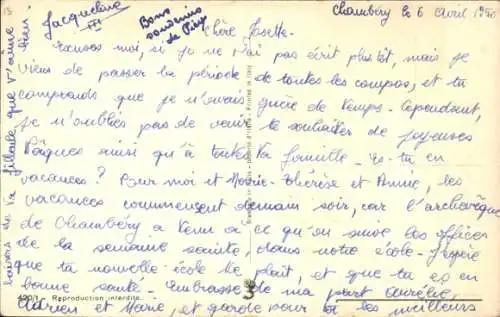 Chambéry le 6 Avril 19
Jacqueline
III
Bons
souvenirs
de
Chère Josette.
Excuses moi, si je ne t'ai pas écrit plus tôt, mais je
viens de passer la période de toutes les compos, et tu
comprends que je n'avais guère de temps. Cependant,
je n'oublies pas de venir te souhaiter de joyeuses
Pâques ainsi qu'à toute ta famille. Es-tu en
vacances? Pour moi et Marie-Thérèse et Annie, les
vacances commencent demain soir, car l'archevêque
de Chambéry a tenu a ce qu'on suive les offices
de la semaine sainte, dans notre école. J'espère
que ta nouvelle école te plaît, et que tu es en
bonne santé. Embrasse de ma part Aurélie,
Adrien et Marie, et garde pour toi les meilleurs
baisers de ta filleule que t'aime bien
Reproduction interdite